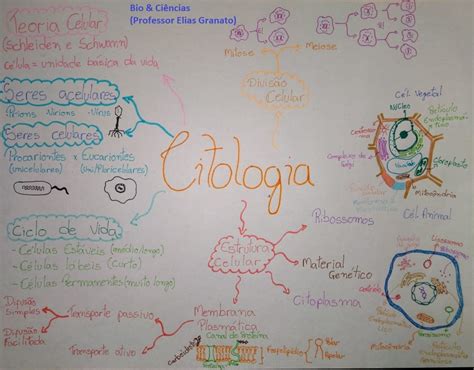 Bio & Ciências
(Professor Elias Granato)
Teoria Celular
(Schleiden e Schwann)
Célula = unidade básica da vida
Seres acelulares
Príons Virions - Vírus
Seres celulares
Procariontes x Eucariontes
(unicelulares) (uni/Pluricelulares)
Ciclo de Vida
- Células Estáveis (médio/longo)
- Células labeis (curto)
- Células permanentes (muito longo)
Citologia
Mitose
Meiose
Divisão
Celular
Cél. Vegetal
Núcleo
Complexo de
Golgi
Cloroplasto
Mitocôndria
Cél. Animal
Estrutura
Celular
Ribossomos
Material
Genético
Citoplasma
Membrana
Plasmática
Transporte passivo
Difusão
Simples
Difusão
Facilitada
Transporte ativo
Canal de Proteína
Carboidrato
Fosfolipídios
Polar
Apolar